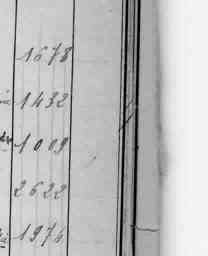 1678
1432
1009
2622
1976